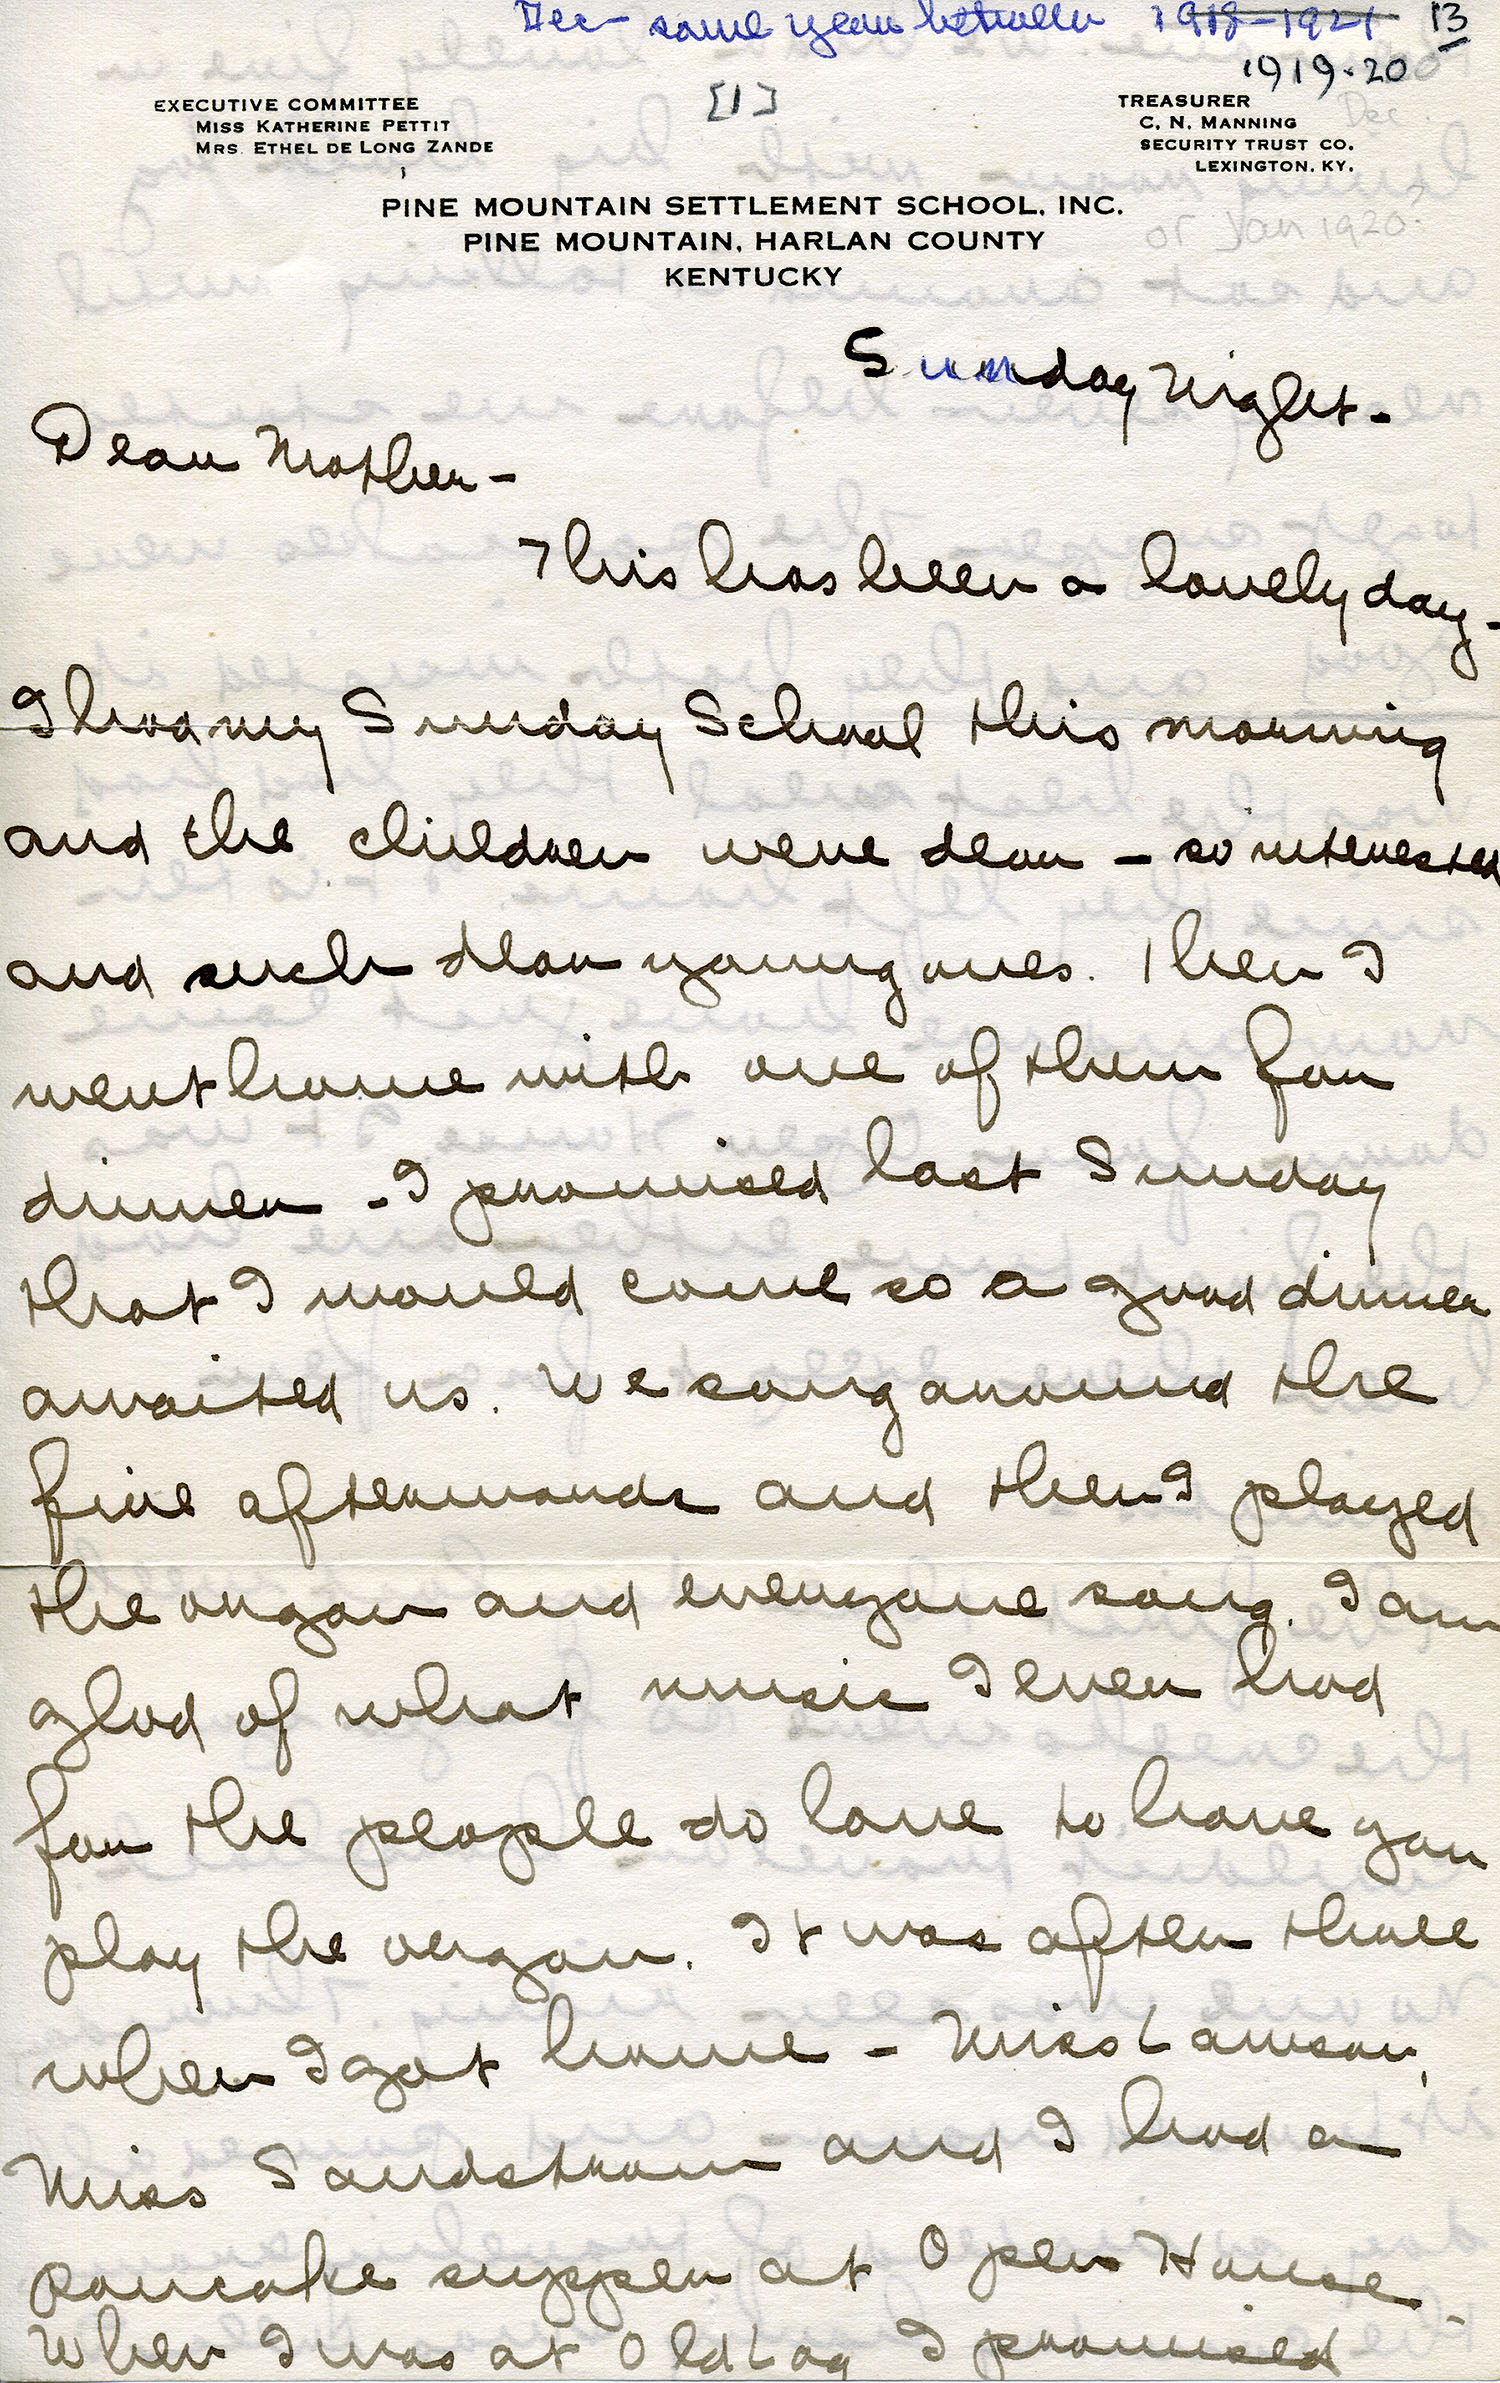 Dec - some year between 1918-1921 13
1919-20
[1]
Dec.
or Jan 1920?
EXECUTIVE COMMITTEE
MISS KATHERINE PETTIT
MRS. ETHEL DE LONG ZANDE
TREASURER
C. N. MANNING
SECURITY TRUST CO.
LEXINGTON, KY.
PINE MOUNTAIN SETTLEMENT SCHOOL, INC.
PINE MOUNTAIN, HARLAN COUNTY
KENTUCKY
Sunday Night -
Dear Mother -
This has been a lovely day -
I had my Sunday School this morning
and the children were dear - so interested
and such dear young ones. Then I
went home with one of them for
dinner - I promised last Sunday
that I would come so a good dinner
awaited us. We sang around the
fire afterwards and then I played
the organ and everyone sang. I am
glad of what music I ever had
for the people do love to have you
play the organ. It was after three
when I got home - Miss Lawson,
Miss Sandstrom and I had a
pancake supper at Open House -
When I was at Old Log I promised